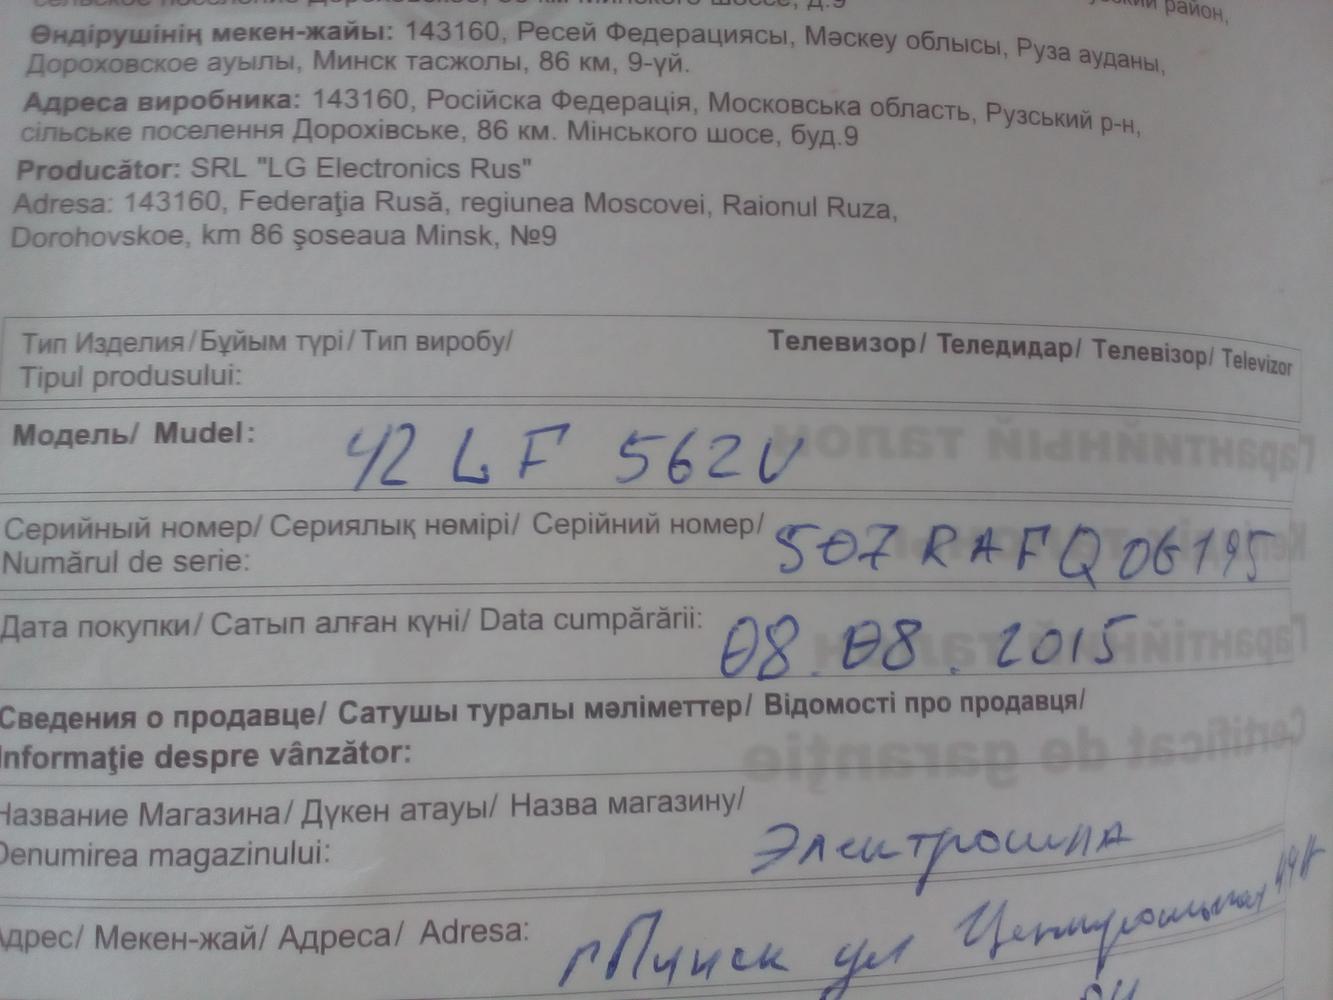 сельское поселение Дороховское, 86 км Минского шоссе, д.9
район,
Өндірушінің мекен-жайы: 143160, Ресей Федерациясы, Мәскеу облысы, Руза ауданы,
Дороховское ауылы, Минск тасжолы, 86 км, 9-үй.
Адреса виробника: 143160, Російска Федерація, Московська область, Рузський р-н,
сільське поселення Дорохівське, 86 км. Мінського шосе, буд.9
Producător: SRL "LG Electronics Rus"
Adresa: 143160, Federaţia Rusă, regiunea Moscovei, Raionul Ruza,
Dorohovskoe, km 86 şoseaua Minsk, №9
Тип Изделия/Бұйым түрі/Тип виробу/ Телевизор/ Теледидар/ Телевізор/ Televizor
Tipul produsului:
Модель/ Mudel: 42 LF 562V
Серийный номер/ Сериялық нөмірі/ Серійний номер/ 507RAFQ06195
Numărul de serie:
Дата покупки/ Сатып алған күні/ Data cumpărării: 08.08.2015
Сведения о продавце/ Сатушы туралы мәліметтер/ Відомості про продавця/
Informaţie despre vânzător:
Название Магазина/ Дүкен атауы/ Назва магазину/
Denumirea magazinului: Электросила
Адрес/ Мекен-жай/ Адреса/ Adresa: г Пинск ул Центральная